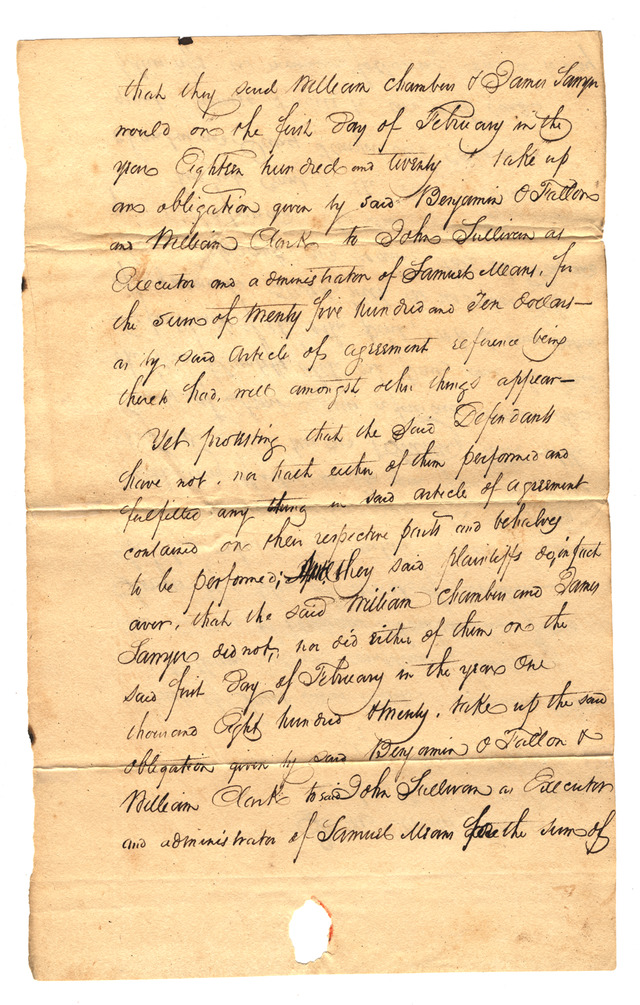 that they said William Chambers & James Sawyer
would on the first Day of February in the
year Eighteen hundred and twenty take up
an obligation given by said Benjamin O Fallon
and William Clark to John Sullivan as
Executor and administrator of Samuel Means, for
the sum of twenty five hundred and Ten dollars—
as by said Article of agreement reference being
thereto had, will amongst other things appear—
Yet protesting that the said Defendants
have not, nor hath either of them performed and
fulfilled any thing in said article of agreement
contained on their respective parts and behalves
to be performed; they said plaintiffs do, in fact
aver, that the said William Chambers and James
Sawyer did not, nor did either of them on the
said first Day of February in the year One
thousand Eight hundred & twenty, take up the said
obligation given by said Benjamin O Fallon &
William Clark to said John Sullivan as Executor
and administrator of Samuel Means for the sum of